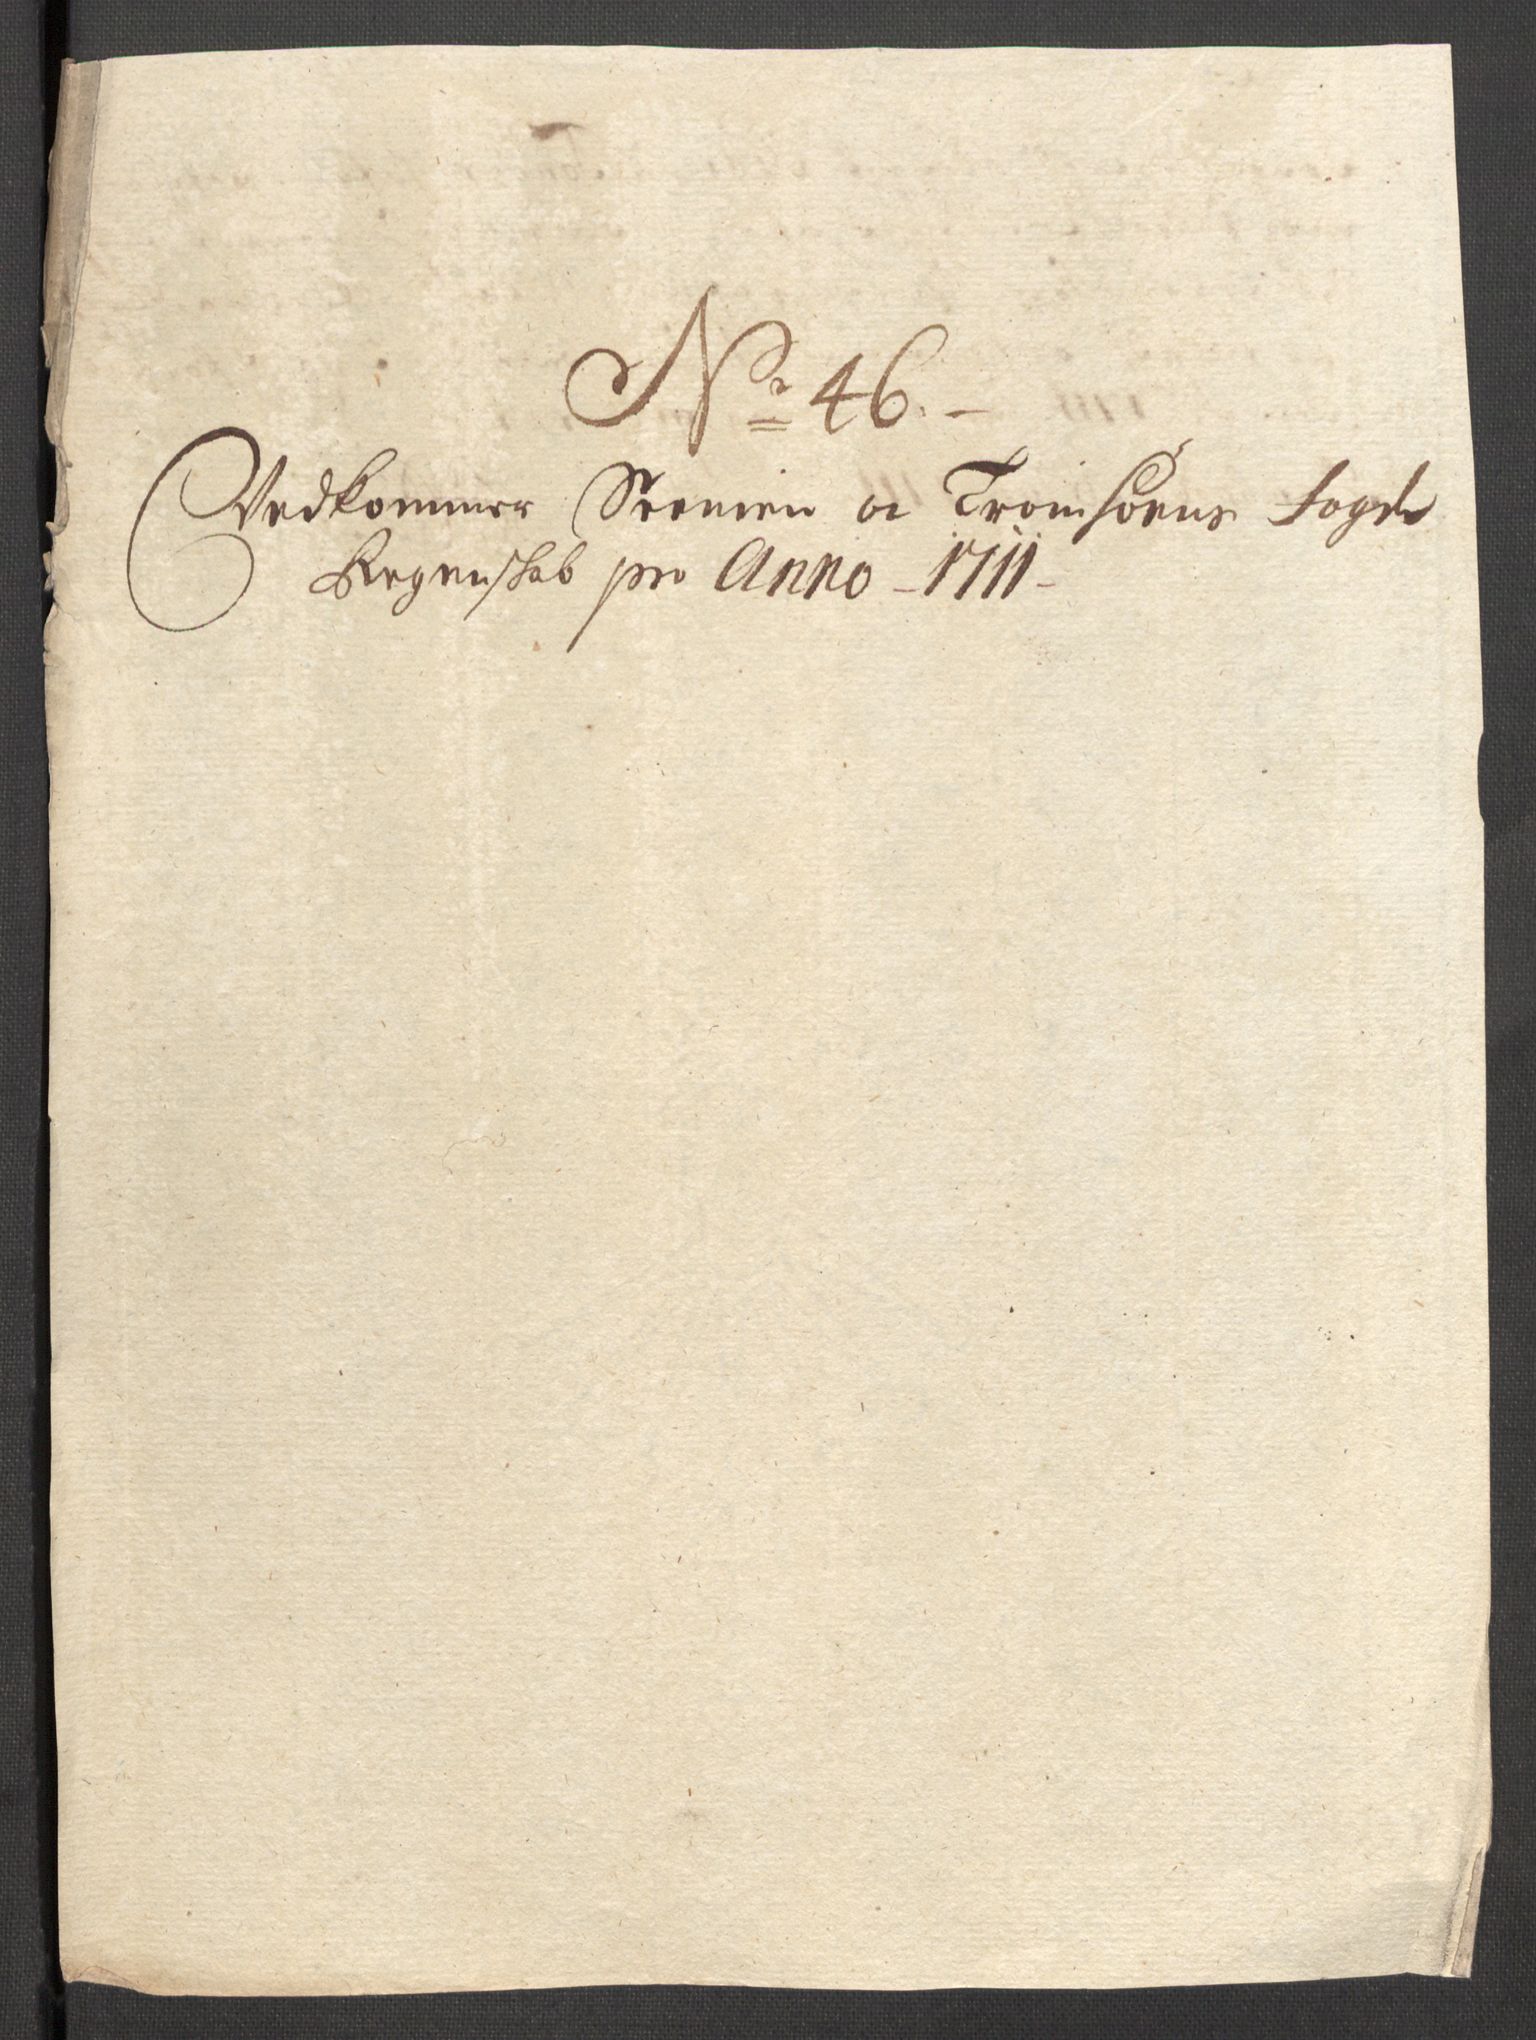 No 46.
Vedkommer Seenien oc Tromsøens fogde
Regenskab pro Anno 1711